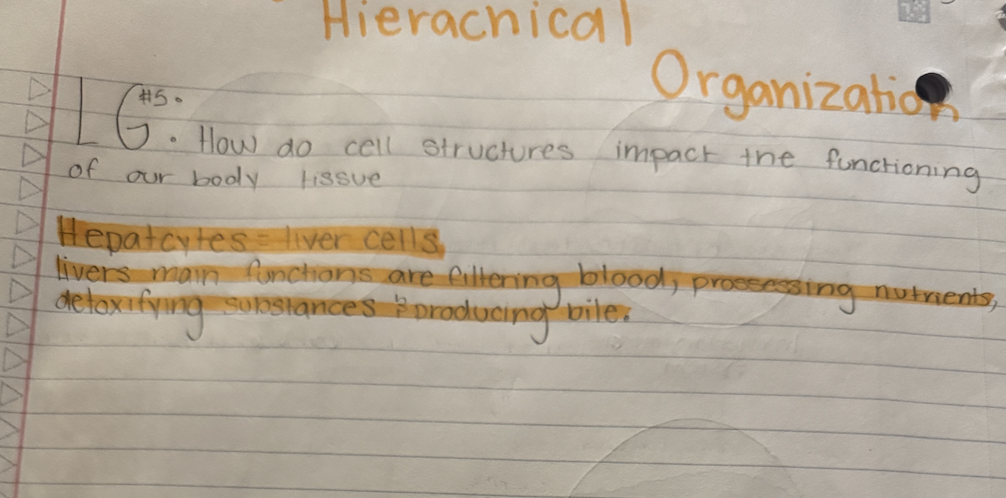 Hierachical
Organization
LG #5. . How do cell structures impact the functioning
of our body tissue
Hepatcytes = liver cells.
livers main functions are filtering blood, prossessing nutrients,
detoxifying substances & producing bile.